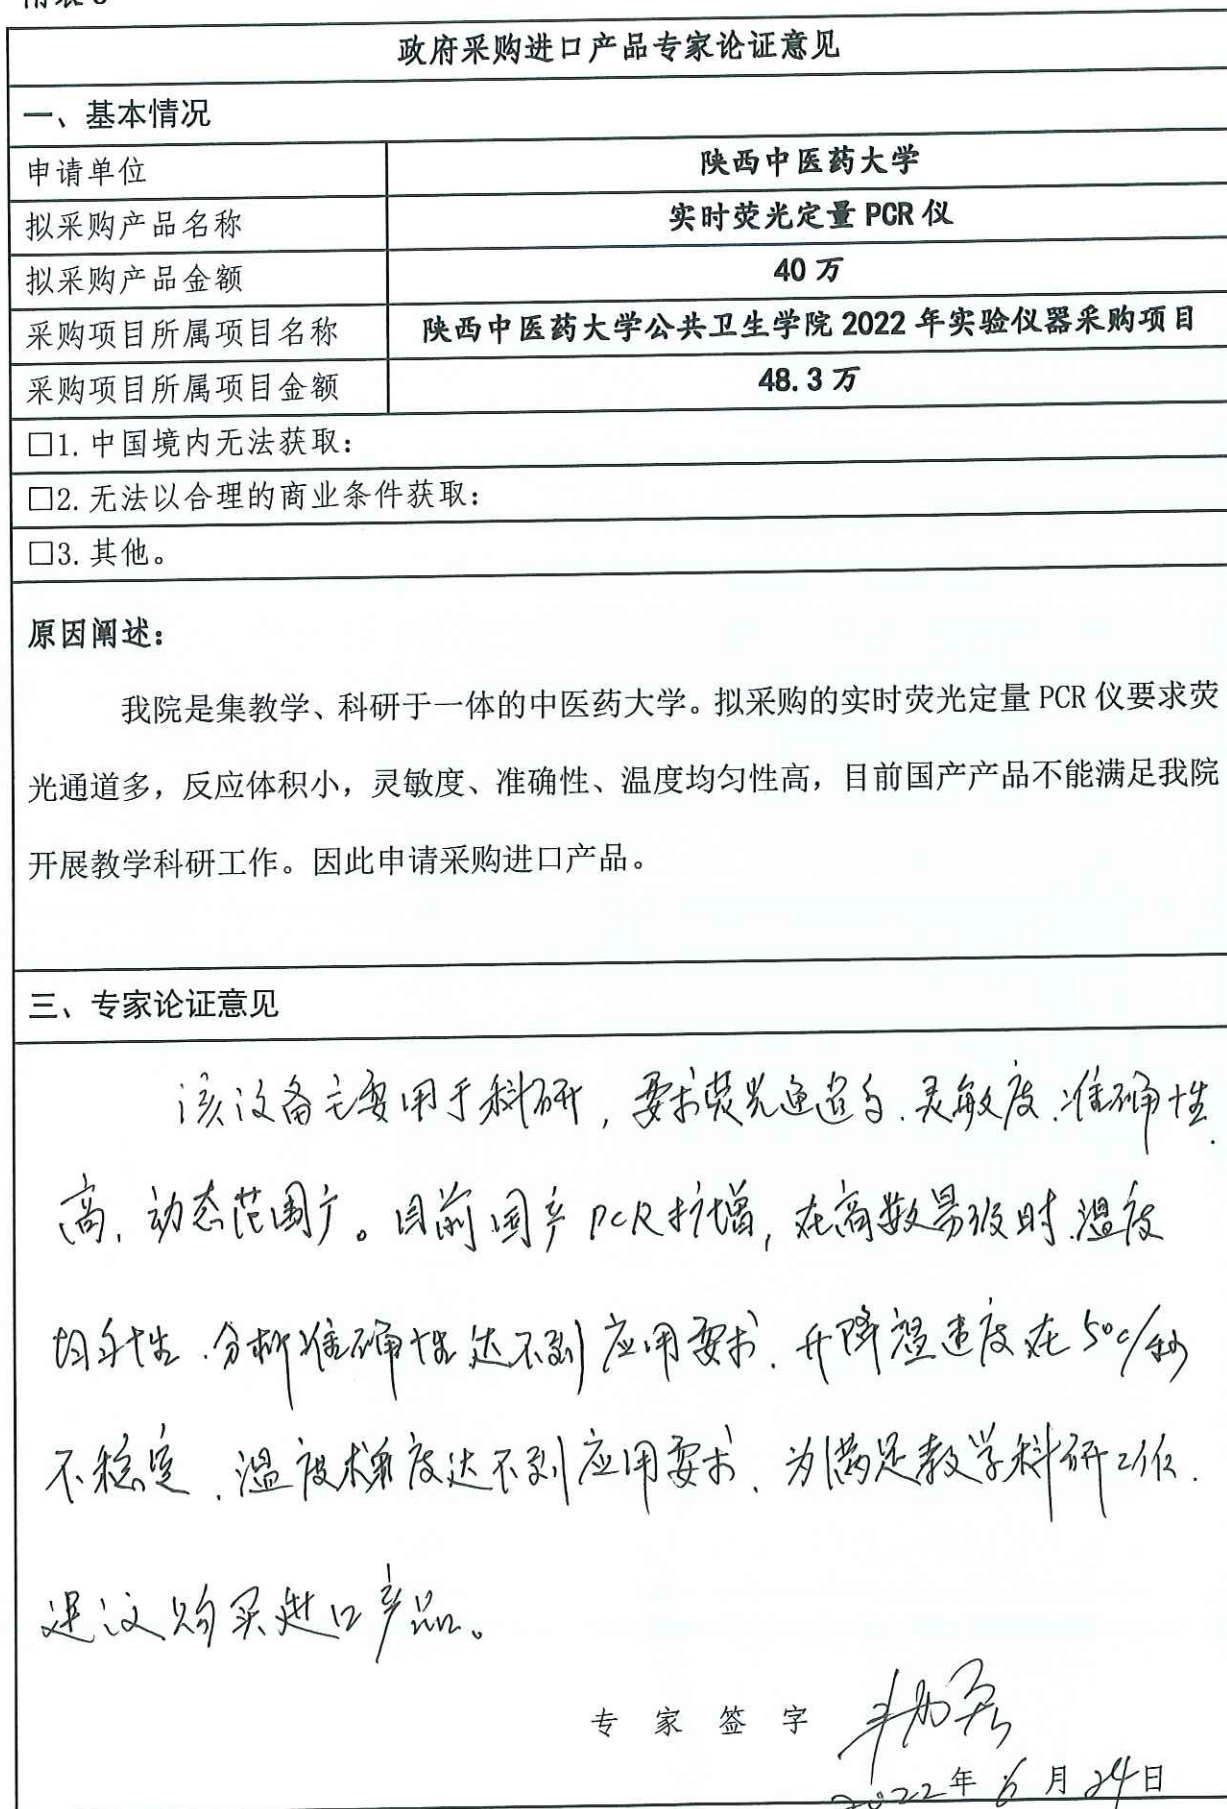 政府采购进口产品专家论证意见
一、基本情况
申请单位 陕西中医药大学
拟采购产品名称 实时荧光定量 PCR 仪
拟采购产品金额 40 万
采购项目所属项目名称 陕西中医药大学公共卫生学院 2022 年实验仪器采购项目
采购项目所属项目金额 48.3 万
□1. 中国境内无法获取：
□2. 无法以合理的商业条件获取：
□3. 其他。
原因阐述：
我院是集教学、科研于一体的中医药大学。拟采购的实时荧光定量 PCR 仪要求荧
光通道多，反应体积小，灵敏度、准确性、温度均匀性高，目前国产产品不能满足我院
开展教学科研工作。因此申请采购进口产品。
三、专家论证意见
该设备主要用于科研，要求荧光通道多、灵敏度、准确性
高、动态范围广。目前国产PCR扩增，在高数量级时、温度
均匀性、分析准确性达不到应用要求、升降温速度在5℃/秒
不稳定、温度梯度达不到应用要求、为满足教学科研工作、
建议购买进口产品。
专 家 签 字
2022年 6 月 24日